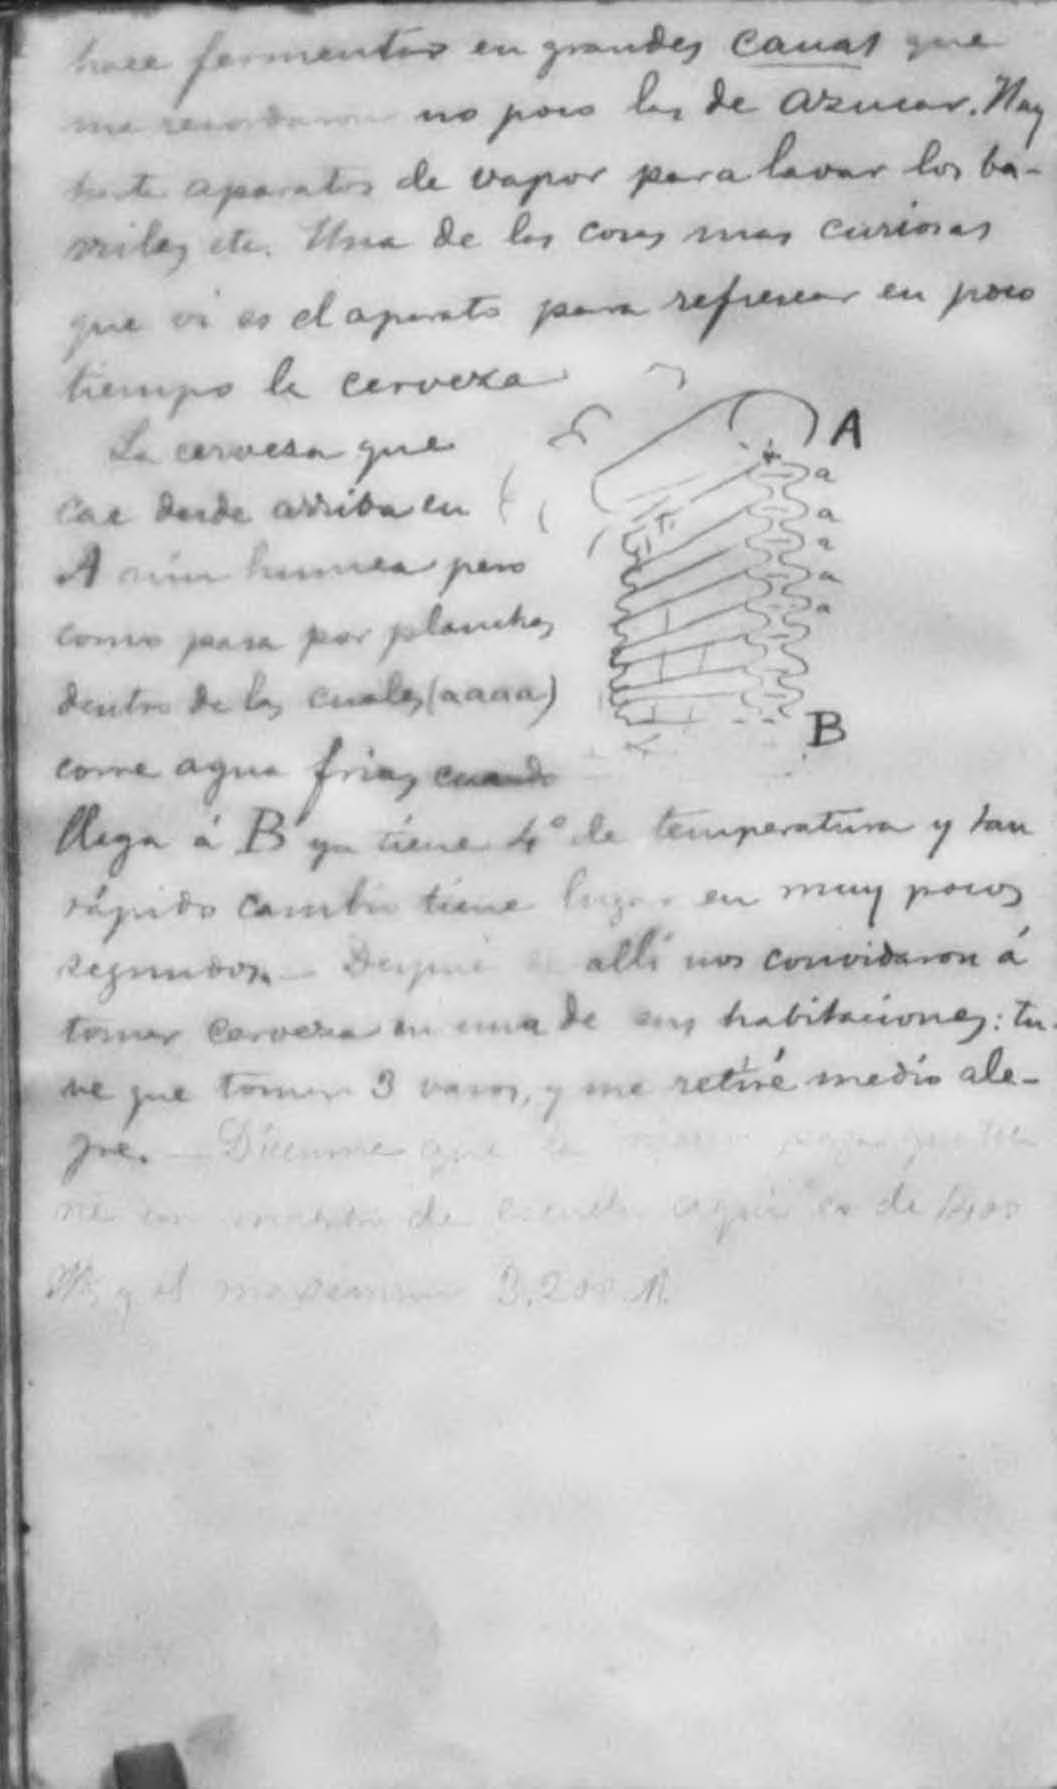 hace fermentar en grandes cauas que
me recordaron no poco las de azucar. Hay
hasta aparatos de vapor para lavar los ba-
rriles etc. Una de las cosas mas curiosas
que vi es el aparato para refrescar en poco
tiempo la cerveza
La cerveza que
cae desde arriba en
A aún humea pero
como pasa por planchas
dentro de las cuales (aaaa)
corre agua fria, cuando
llega á B ya tiene 4° de temperatura y tan
rápido cambio tiene lugar en muy pocos
segundos. — Despues de allí nos convidaron á
tomar cerveza en una de sus habitaciones: tu-
ve que tomar 3 vasos, y me retiré medio ale-
gre. — Dicenme que la paga que tie
ne un maestro de escuela aqui es de 1400
M. y el maximum 3,200 M.
A
a
a
a
a
a
B